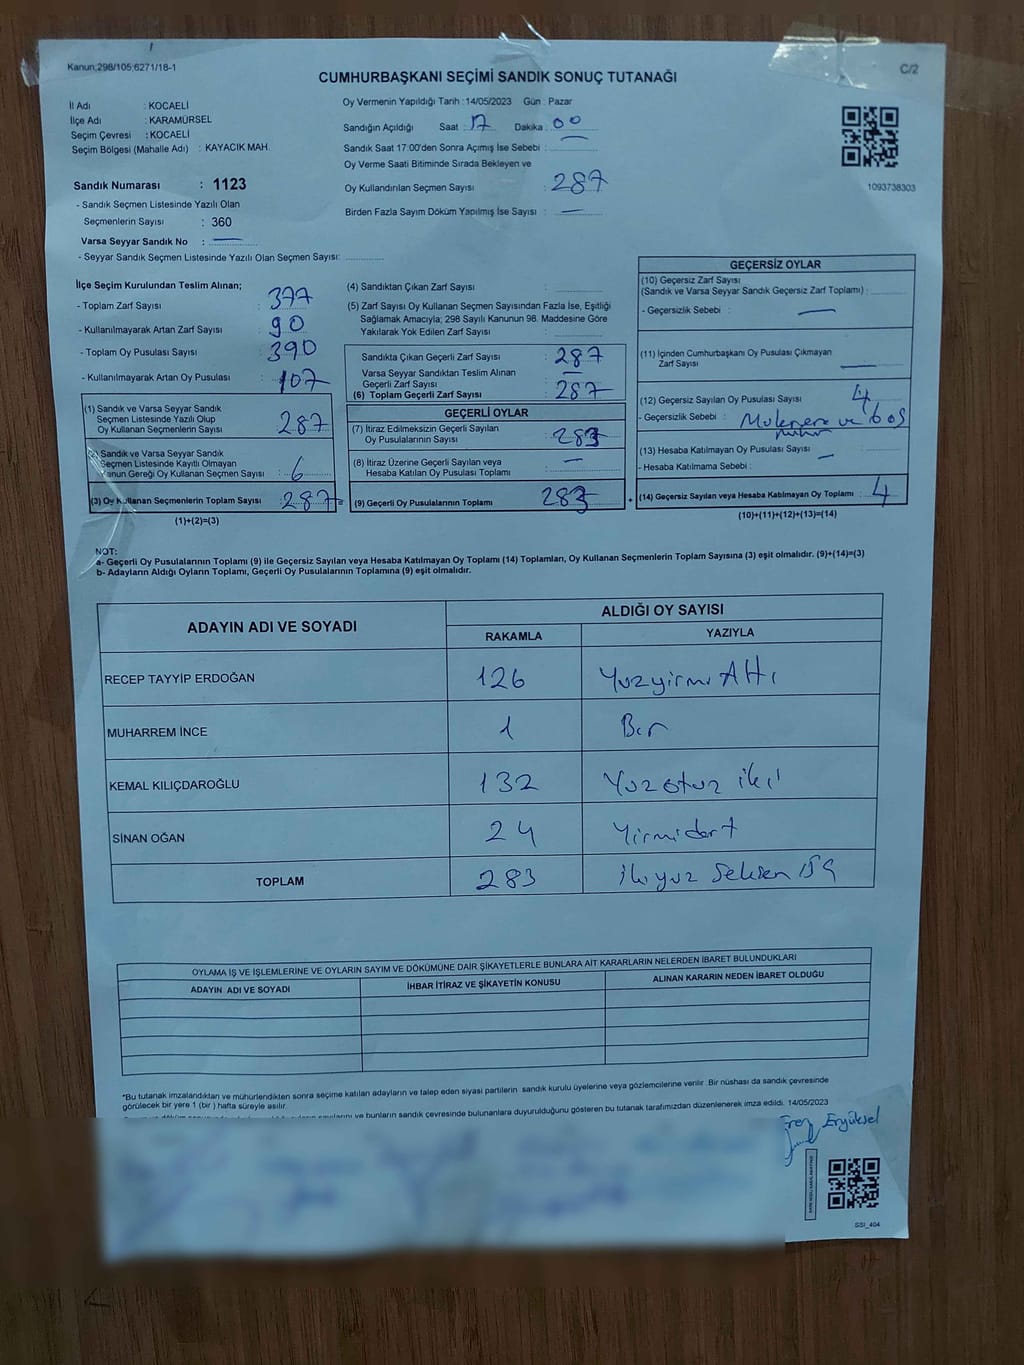 Kanun:298/105;6271/18-1
C/2
CUMHURBAŞKANI SEÇİMİ SANDIK SONUÇ TUTANAĞI
İl Adı : KOCAELİ
İlçe Adı : KARAMÜRSEL
Seçim Çevresi : KOCAELİ
Seçim Bölgesi (Mahalle Adı) : KAYACIK MAH.
Sandık Numarası : 1123
- Sandık Seçmen Listesinde Yazılı Olan
Seçmenlerin Sayısı : 360
Varsa Seyyar Sandık No : —
- Seyyar Sandık Seçmen Listesinde Yazılı Olan Seçmen Sayısı:
Oy Vermenin Yapıldığı Tarih : 14/05/2023 Gün : Pazar
Sandığın Açıldığı Saat : 17 Dakika : 00
Sandık Saat 17:00'den Sonra Açımış İse Sebebi : —
Oy Verme Saati Bitiminde Sırada Bekleyen ve
Oy Kullandırılan Seçmen Sayısı : 287
Birden Fazla Sayım Döküm Yapılmış İse Sayısı : —
1093738303
İlçe Seçim Kurulundan Teslim Alınan;
- Toplam Zarf Sayısı : 377
- Kullanılmayarak Artan Zarf Sayısı : 90
- Toplam Oy Pusulası Sayısı : 390
- Kullanılmayarak Artan Oy Pusulası : 107
(1) Sandık ve Varsa Seyyar Sandık
Seçmen Listesinde Yazılı Olup
Oy Kullanan Seçmenlerin Sayısı : 287
Sandık ve Varsa Seyyar Sandık
Seçmen Listesinde Kayıtlı Olmayan
Kanun Gereği Oy Kullanan Seçmen Sayısı : 6
(3) Oy Kullanan Seçmenlerin Toplam Sayısı : 287 =
(1)+(2)=(3)
(4) Sandıktan Çıkan Zarf Sayısı :
(5) Zarf Sayısı Oy Kullanan Seçmen Sayısından Fazla İse, Eşitliği
Sağlamak Amacıyla; 298 Sayılı Kanunun 98. Maddesine Göre
Yakılarak Yok Edilen Zarf Sayısı :
Sandıkta Çıkan Geçerli Zarf Sayısı : 287
Varsa Seyyar Sandıktan Teslim Alınan
Geçerli Zarf Sayısı : —
(6) Toplam Geçerli Zarf Sayısı : 287
GEÇERLİ OYLAR
(7) İtiraz Edilmeksizin Geçerli Sayılan
Oy Pusulalarının Sayısı : 283
(8) İtiraz Üzerine Geçerli Sayılan veya
Hesaba Katılan Oy Pusulası Toplamı : —
(9) Geçerli Oy Pusulalarının Toplamı : 283 +
GEÇERSİZ OYLAR
(10) Geçersiz Zarf Sayısı
(Sandık ve Varsa Seyyar Sandık Geçersiz Zarf Toplamı) :
- Geçersizlik Sebebi : —
(11) İçinden Cumhurbaşkanı Oy Pusulası Çıkmayan
Zarf Sayısı : —
(12) Geçersiz Sayılan Oy Pusulası Sayısı : 4
- Geçersizlik Sebebi : ve boş
mühür
(13) Hesaba Katılmayan Oy Pusulası Sayısı : —
- Hesaba Katılmama Sebebi :
(14) Geçersiz Sayılan veya Hesaba Katılmayan Oy Toplamı : 4
(10)+(11)+(12)+(13)=(14)
NOT:
a- Geçerli Oy Pusulalarının Toplamı (9) ile Geçersiz Sayılan veya Hesaba Katılmayan Oy Toplamı (14) Toplamları, Oy Kullanan Seçmenlerin Toplam Sayısına (3) eşit olmalıdır. (9)+(14)=(3)
b- Adayların Aldığı Oyların Toplamı, Geçerli Oy Pusulalarının Toplamına (9) eşit olmalıdır.
ADAYIN ADI VE SOYADI
ALDIĞI OY SAYISI
RAKAMLA YAZIYLA
RECEP TAYYİP ERDOĞAN 126 Yuzyirmi Altı
MUHARREM İNCE 1 Bir
KEMAL KILIÇDAROĞLU 132 Yuzotuz iki
SİNAN OĞAN 24 Yirmidört
TOPLAM 283 ikiyuz Seksen üç
OYLAMA İŞ VE İŞLEMLERİNE VE OYLARIN SAYIM VE DÖKÜMÜNE DAİR ŞİKAYETLERLE BUNLARA AİT KARARLARIN NELERDEN İBARET BULUNDUKLARI
ADAYIN ADI VE SOYADI İHBAR İTİRAZ VE ŞİKAYETİN KONUSU ALINAN KARARIN NEDEN İBARET OLDUĞU
*Bu tutanak imzalandıktan ve mühürlendikten sonra seçime katılan adayların ve talep eden siyasi partilerin sandık kurulu üyelerine veya gözlemcilerine verilir. Bir nüshası da sandık çevresinde
görülecek bir yere 1 (bir) hafta süreyle asılır.
ve bunların sandık çevresinde bulunanlara duyurulduğunu gösteren bu tutanak tarafımızdan düzenlenerek imza edildi. 14/05/2023
Eren Eryüksel
SSI_404